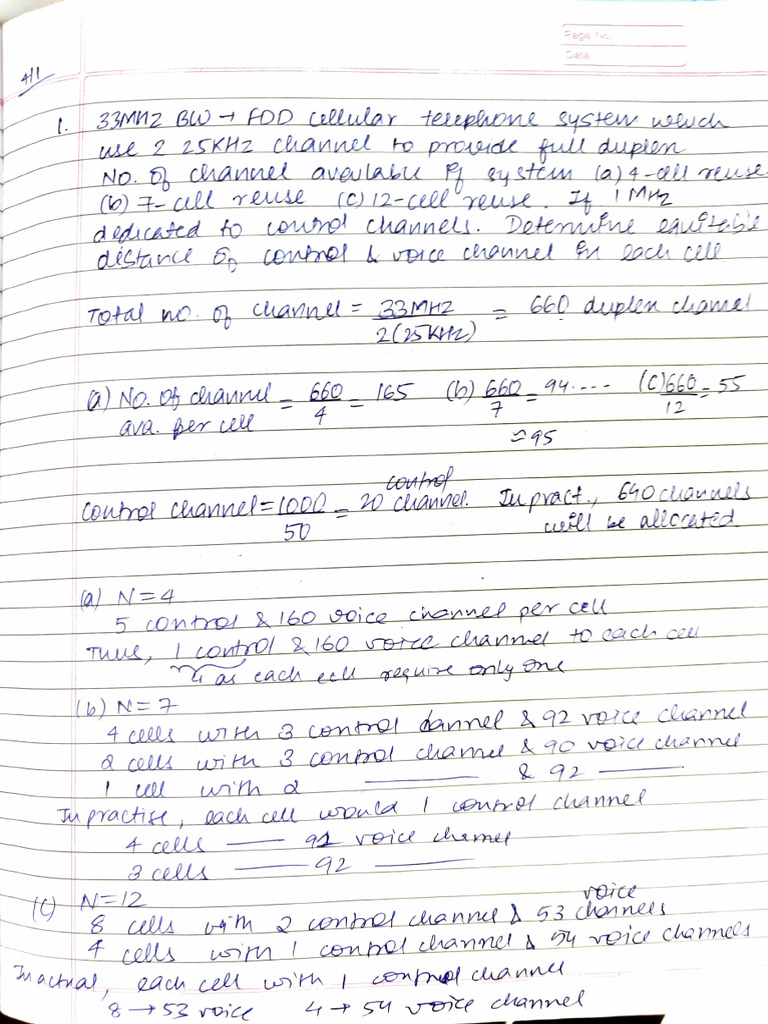 Page No.
Date
4/1
1. 33MHZ BW → FDD cellular telephone system which
use 2 25KHZ channel to provide full duplex
NO. of channel available if system (a) 4-cell reuse.
(b) 7-cell reuse (c) 12-cell reuse. If 1 MHz
dedicated to control channels. Determine equitable
distance of control & voice channel in each cell
Total no. of channel = 33MHZ / 2(25KHZ) = 660 duplex channel
(a) No. of channel ava. per cell = 660/4 = 165 (b) 660/7 = 94.... ≈95 (c) 660/12 = 55
control channel = 1000/50 = 20 control channel. In pract., 640 channels
will be allocated
(a) N=4
5 control & 160 voice channel per cell
Thus, 1 control & 160 voice channel to each cell
↳ as each cell require only one
(b) N=7
4 cells with 3 control channel & 92 voice channel
2 cells with 3 control channel & 90 voice channel
1 cell with 2 —— & 92 ——
In practise, each cell would 1 control channel
4 cells —— 91 voice channel
3 cells —— 92 ——
(c) N=12
8 cells with 2 control channel & 53 voice channels
4 cells with 1 control channel & 54 voice channels
In actual, each cell with 1 control channel
8 → 53 voice 4 → 54 voice channel